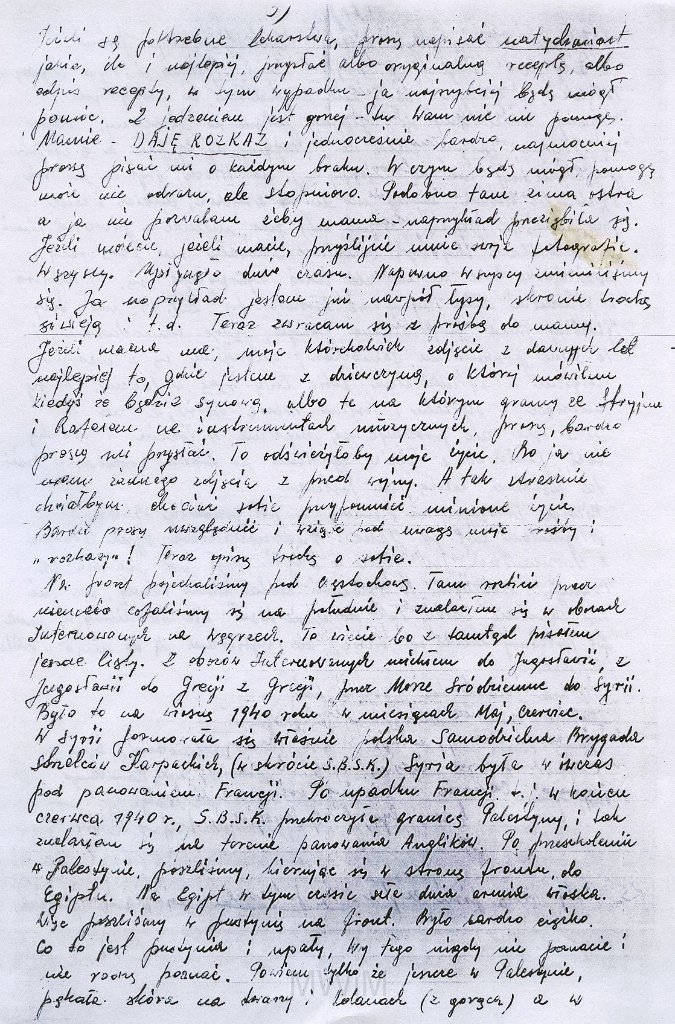 3)
Jeżeli są potrzebne lekarstwa, proszę napisać natychmiast
jakie, ile i najlepiej, przysłać albo oryginalną receptę, albo
odpis recepty, w tym wypadku - ja najszybciej będę mógł
pomóc. Z jedzeniem jest gorzej - tu Wam nic nie pomogę.
Mamie - DAJĘ ROZKAZ i jednocześnie bardzo, najmocniej
proszę pisać mi o każdym braku. W czym będę mógł, pomogę
może nie odrazu, ale stopniowo. Podobno tam zima ostra
a ja nie pozwalam żeby mama - naprzykład przeziębiła się.
Jeżeli możecie, jeżeli macie, przyślijcie mnie swoje fotografie.
Wszyscy. Upłynęło dużo czasu. Napewno wszyscy zmieniliśmy
się. Ja naprzykład jestem już nawpół łysy, skronie trochę
siwieją i t.d. Teraz zwracam się z prośbą do mamy.
Jeżeli mama ma, moje którekolwiek zdjęcie z dawnych lat
najlepiej to, gdzie jestem z dziewczyną, o której mówiłem
kiedyś że będzie synową, albo te na którym gramy ze Stryjem
i Rafałem na instrumentach muzycznych, proszę, bardzo
proszę mi przysłać. To odświeżyłoby moje życie. Bo ja nie
mam żadnego zdjęcia z przed wojny. A tak strasznie
chciałbym chociaż sobie przypomnieć minione życie.
Bardzo proszę uwzględnić i wziąść pod uwagę moje prośby i
„rozkazy"! Teraz opiszę trochę o sobie.
Na front pojechaliśmy pod Częstochowę. Tam rozbici przez
niemców cofaliśmy się na południe i znalazłem się w obozach
Internowanych na węgrzech. To wiecie bo z tamtąd pisałem
jeszcze listy. Z obozów Internowanych uciekłem do Jugosławii, z
Jugosławii do Grecji z Grecji, przez Morze Śródziemne do Syrii.
Było to na wiosnę 1940 roku w miesiącach Maj, Czerwiec.
W Syrii formowała się właśnie polska Samodzielna Brygada
strzelców Karpackich, (w skrócie S.B.S.K.) Syria była wówczas
pod panowaniem Francji. Po upadku Francji t.j. w końcu
czerwca 1940 r., S.B.S.K. przekroczyła granicę Palestyny, i tak
znalazłam się na terenie panowania Anglików. Po przeszkoleniu
w Palestynie, poszliśmy, kierując się w stronę frontu, do
Egiptu. Na Egipt w tym czasie szła duża armia włoska.
Więc poszliśmy w pustynię na front. Było bardzo ciężko.
Co to jest pustynia i upały, Wy tego nigdy nie poznacie i
nie radzę poznać. Powiem tylko że jeszcze w Palestynie,
pękała skóra na twarzy i kolanach (z gorąca) a w
MWiM